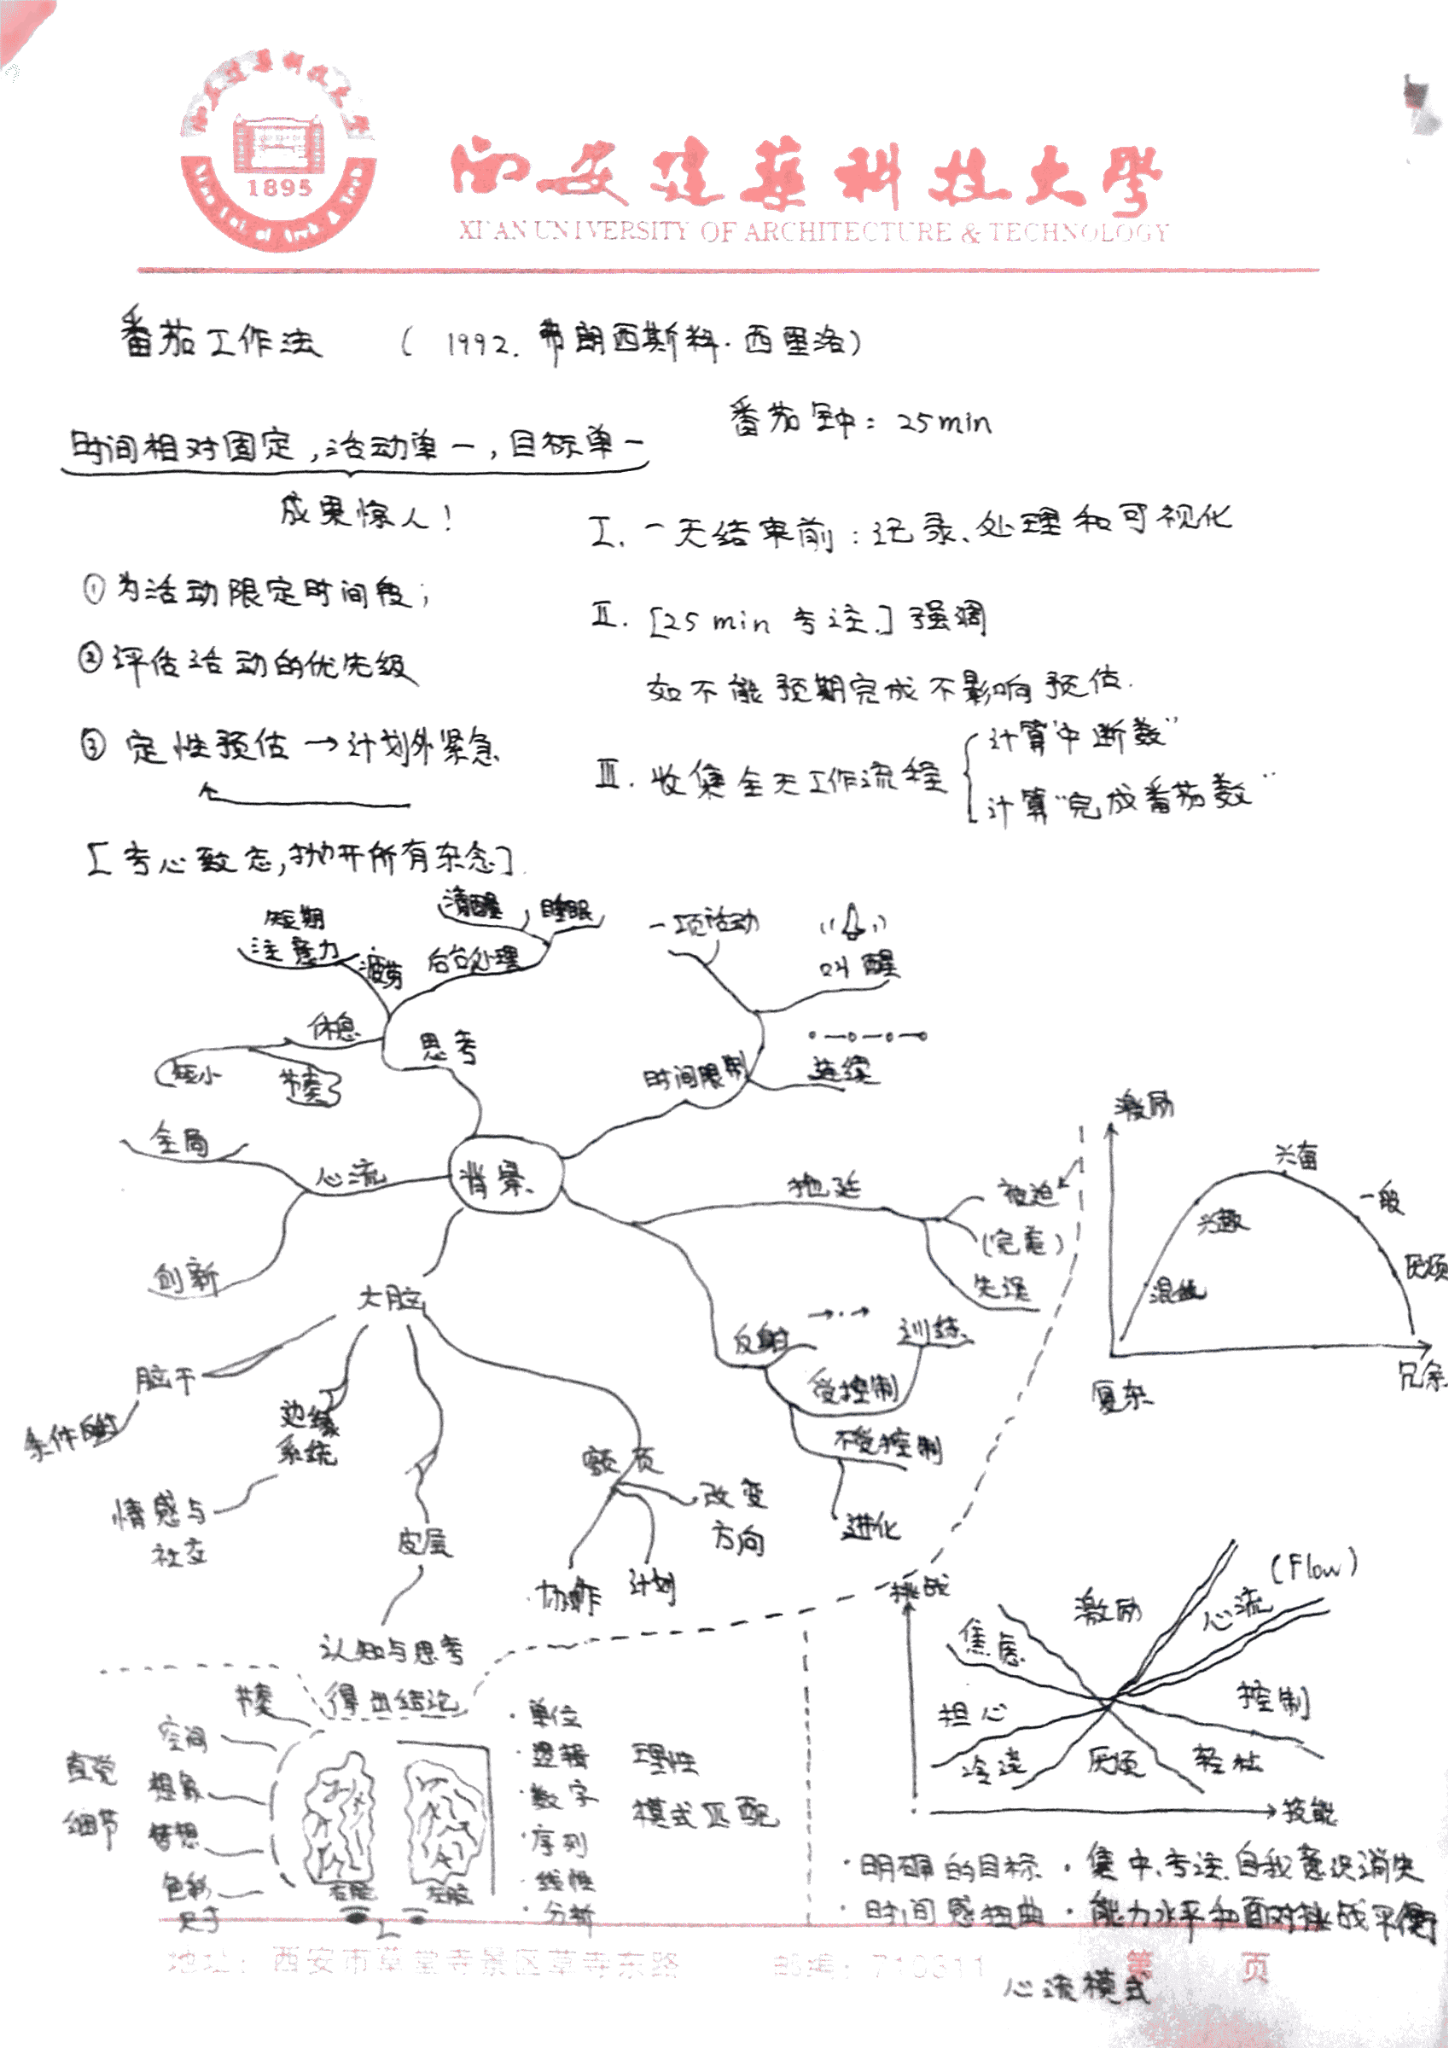 西安建筑科技大学
1895
西安建筑科技大學
XI'AN UNIVERSITY OF ARCHITECTURE & TECHNOLOGY
番茄工作法 ( 1992. 弗朗西斯科·西里洛)
番茄钟: 25min
时间相对固定,活动单一,目标单一
成果惊人!
①为活动限定时间段;
②评估活动的优先级
③ 定性预估→计划外紧急
[专心致志,抛开所有杂念]
I. 一天结束前:记录、处理和可视化
II. [25 min 专注.] 强调
如不能预期完成不影响预估.
III. 收集全天工作流程
计算"中断数"
计算"完成番茄数"
背景
思考
疲劳
短期
注意力
后台处理
清醒
睡眠
休息
短小
节奏
时间限制
一项活动
叫醒
连续
心流
全局
创新
拖延
被迫
(完美)
失误
反射
受控制
训练
不受控制
进化
大脑
脑干
条件反射
边缘
系统
情感与
社交
皮层
认知与思考
得出结论
额页
改变
方向
协作
计划
激励
兴奋
兴趣
一般
厌烦
混乱
复杂
冗余
直觉
细节
节奏
空间
想象
梦想
色彩
尺寸
右脑
左脑
·单位
·逻辑
·数字
·序列
·线性
·分析
理性
模式匹配
挑战
激励
(Flow)
心流
焦虑
担心
控制
冷淡
厌烦
轻松
技能
·明确的目标 ·集中、专注、自我意识消失
·时间感扭曲 ·能力水平和面对挑战平衡
心流模式
地址:西安市草堂寺景区草寺东路 邮编:710311 第 页